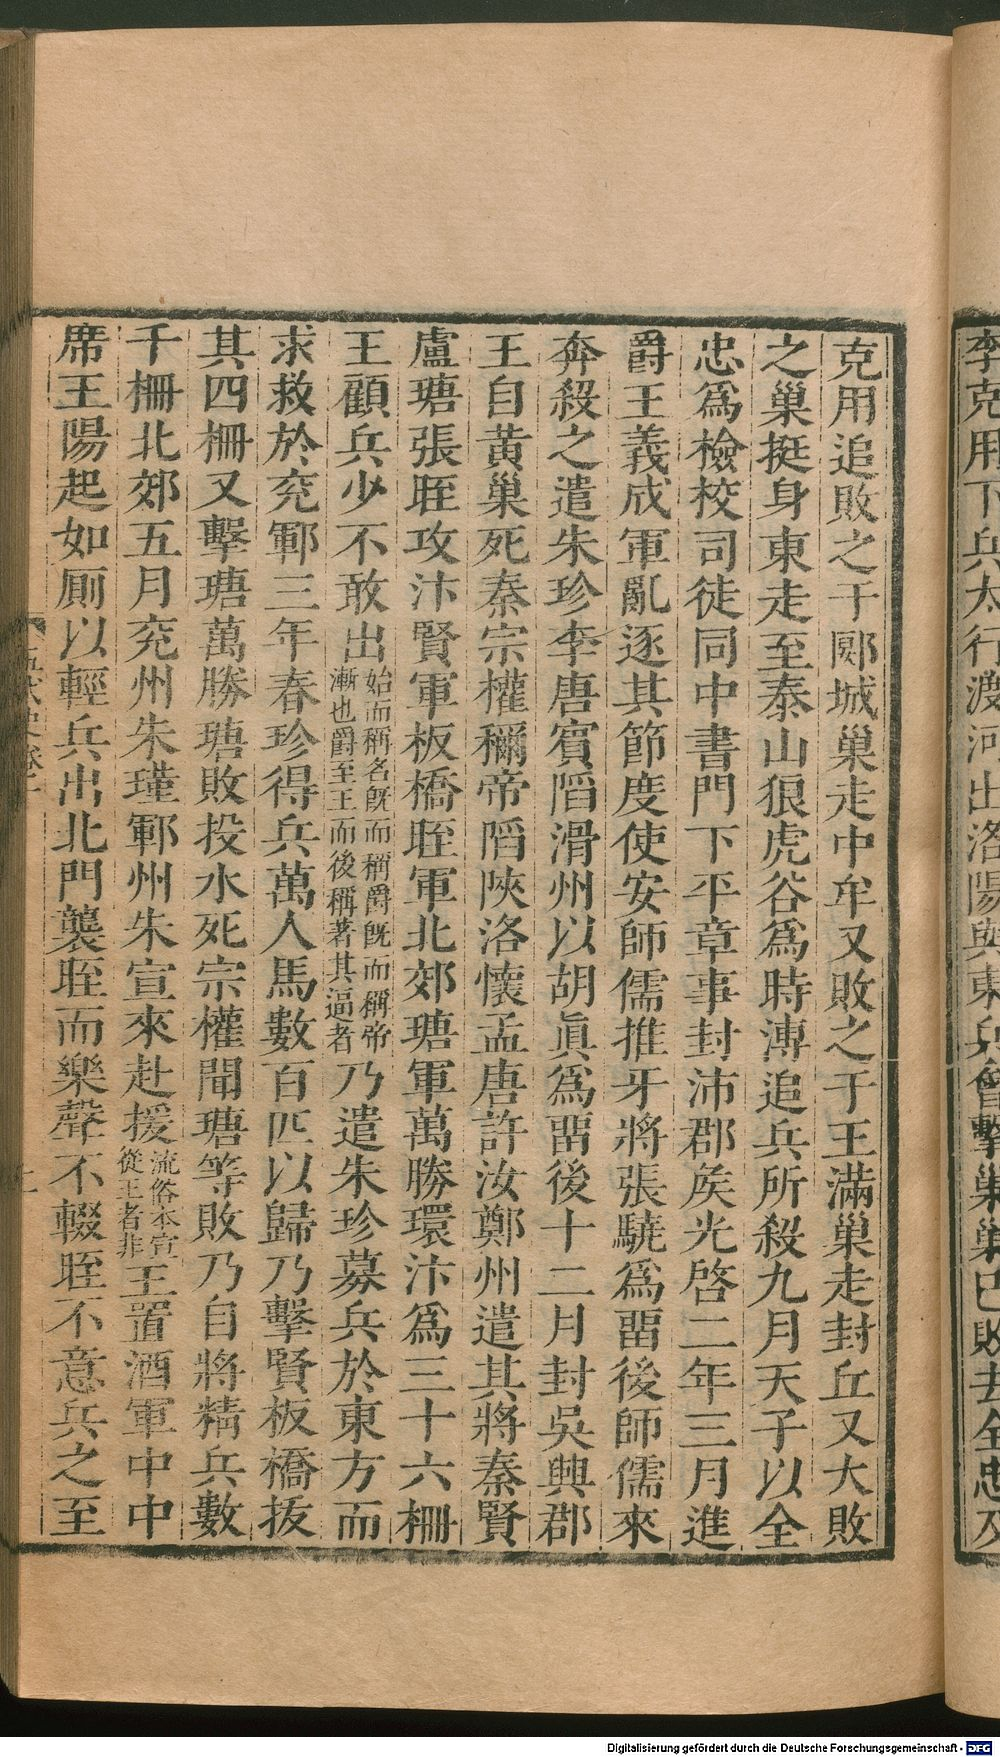 克用追敗之于郾城巢走中牟又敗之于王滿巢走封丘又大敗
之巢挺身東走至泰山狼虎谷爲時溥追兵所殺九月天子以全
忠爲檢校司徒同中書門下平章事封沛郡矦光啓二年三月進
爵王義成軍亂逐其節度使安師儒推牙將張驍爲畱後師儒來
奔殺之遣朱珍李唐賓䧟滑州以胡眞爲畱後十二月封吳興郡
王自黃巢死秦宗權稱帝䧟陝洛懷孟唐許汝鄭州遣其將秦賢
盧瑭張晊攻汴賢軍板橋晊軍北郊瑭軍萬勝環汴爲三十六柵
王顧兵少不敢出始而稱名旣而稱爵旣而稱帝漸也爵至王而後稱著其逼者乃遣朱珍募兵於東方而
求救於兖鄆三年春珍得兵萬人馬數百匹以歸乃擊賢板橋拔
其四柵又擊瑭萬勝瑭敗投水死宗權聞瑭等敗乃自將精兵數
千柵北郊五月兖州朱瑾鄆州朱宣來赴援流俗本宣從王者非王置酒軍中中
席王陽起如厠以輕兵出北門襲晊而樂聲不輟晊不意兵之至
李克用下兵太行渡河出洛陽與東兵會擊巢巢已敗去全忠及
Digitalisierung gefördert durch die Deutsche Forschungsgemeinschaft - DFG